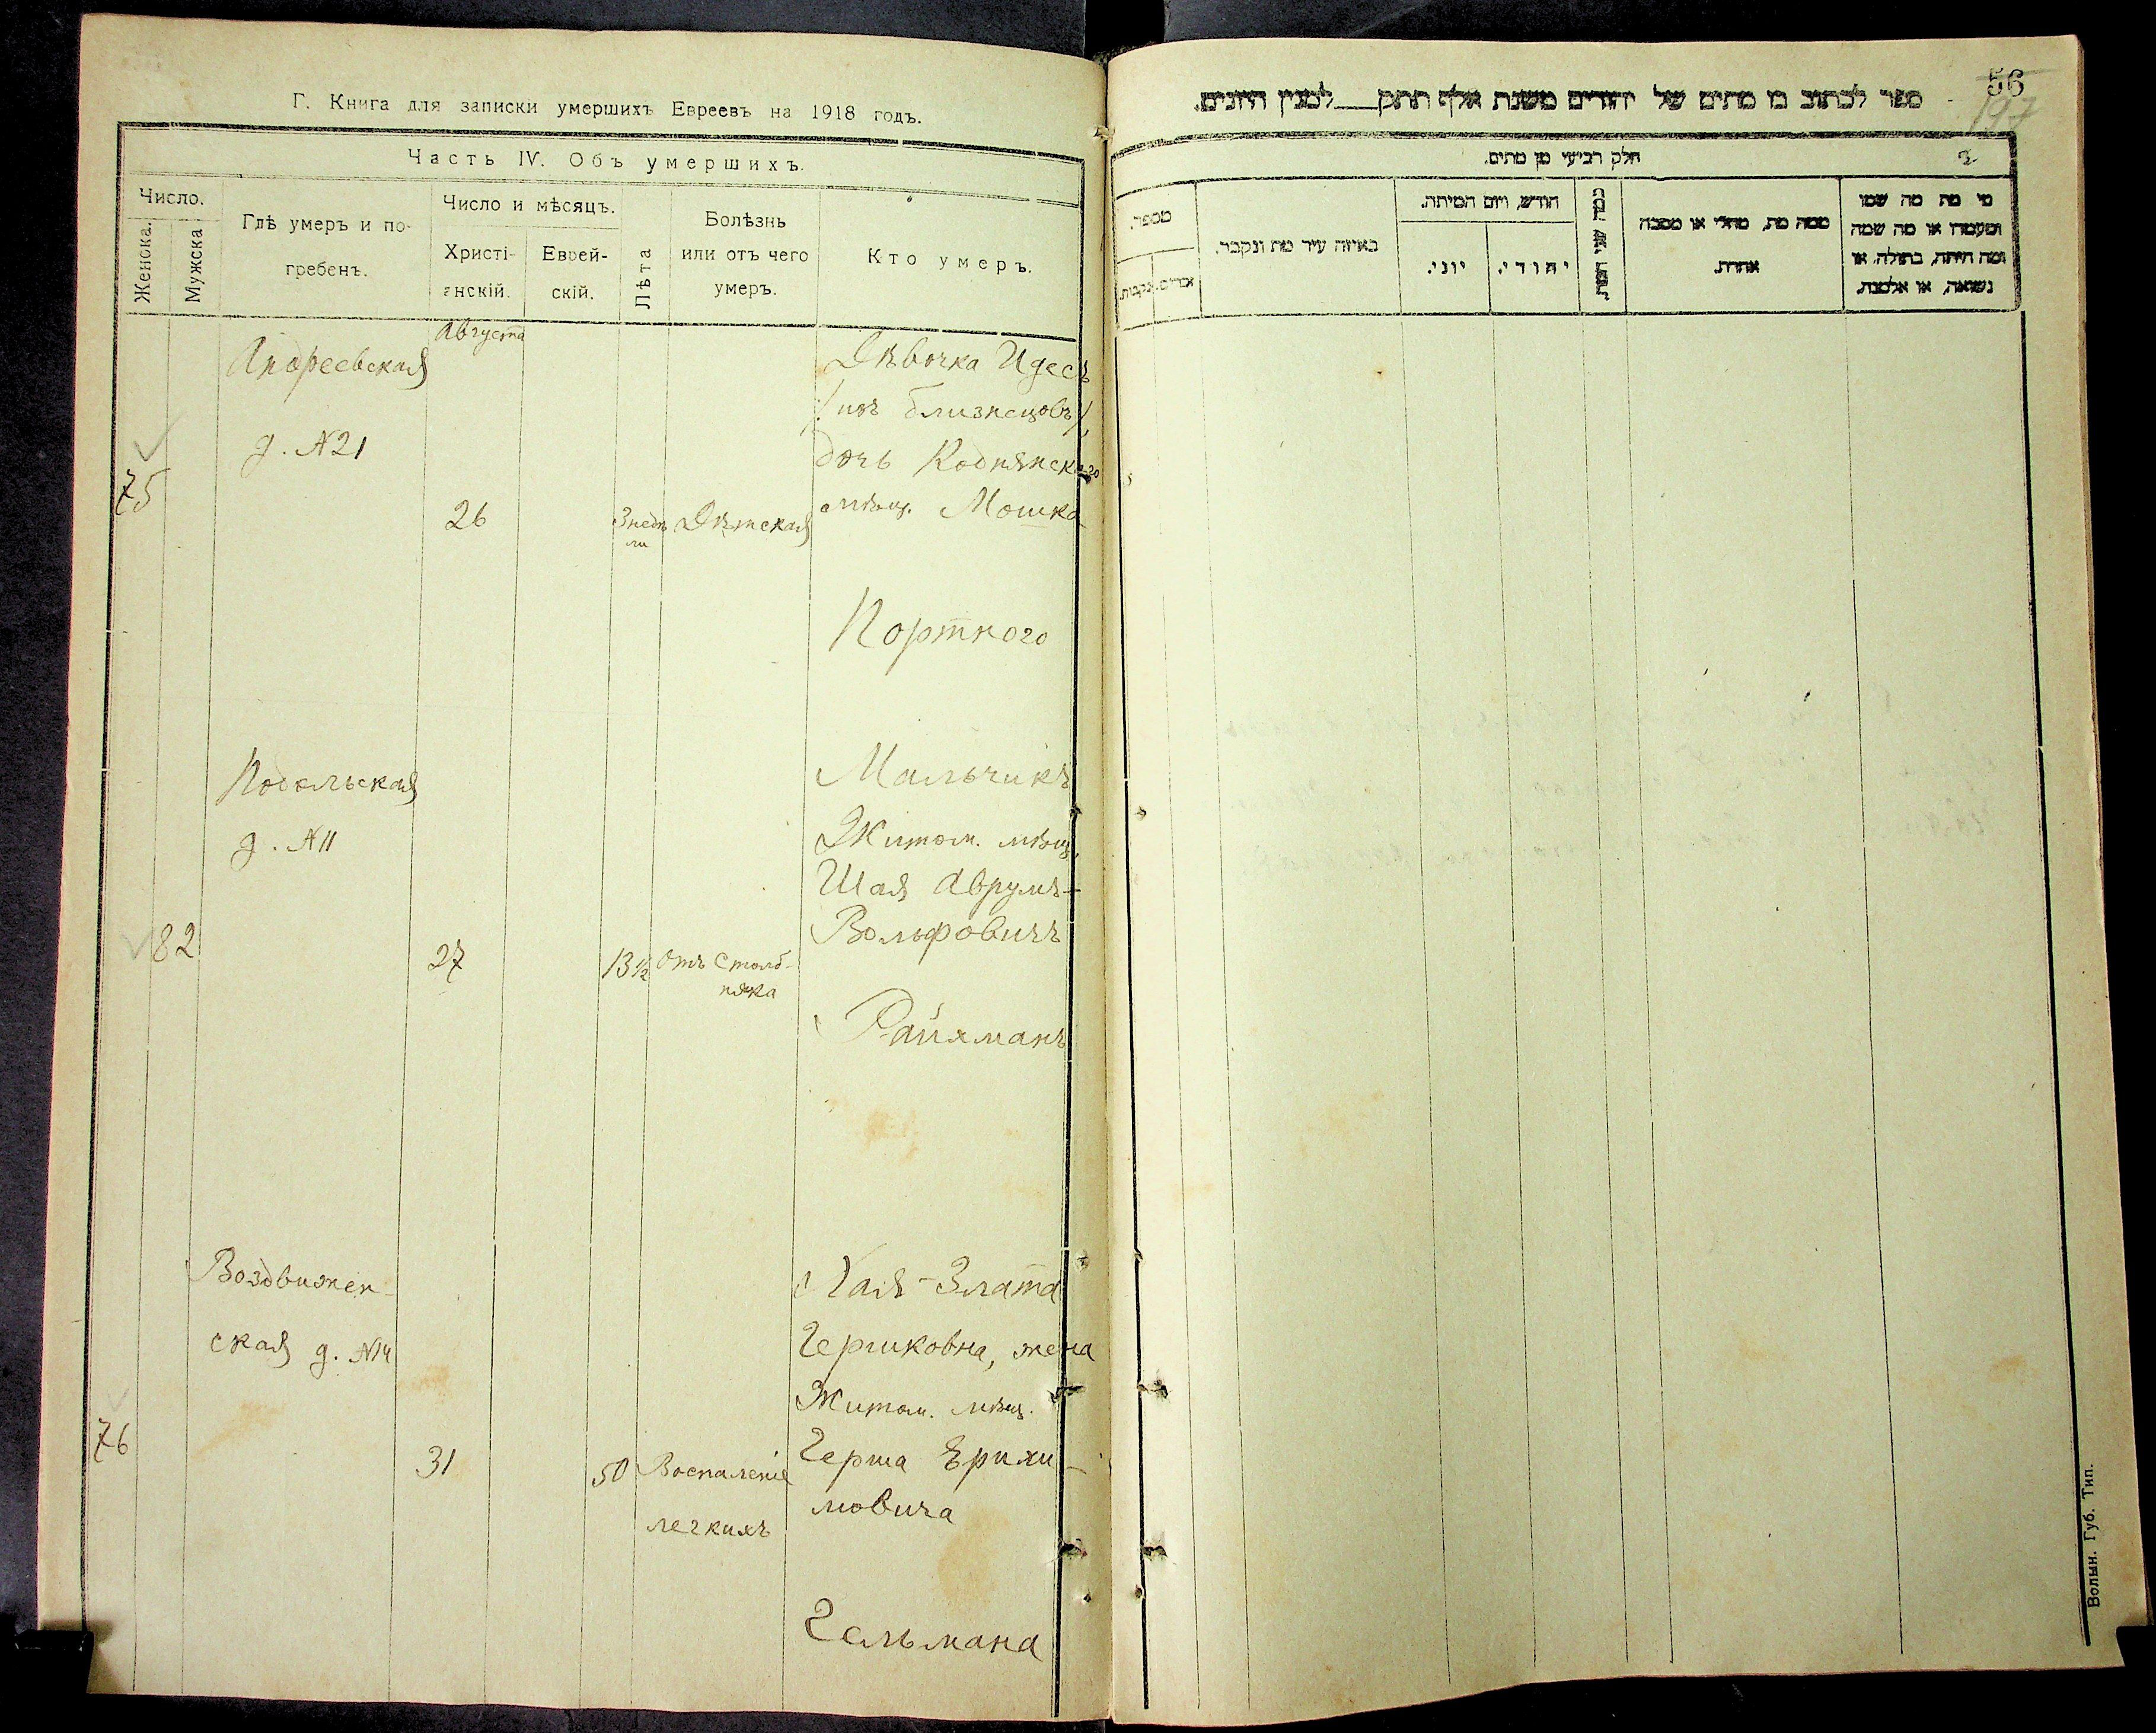 Г. Книга для записки умершихъ Евреевъ на 1918 годъ.
Часть IV. Объ умершихъ.
Число.
Женска.
Мужска
Гдѣ умеръ и по-
гребенъ.
Число и мѣсяцъ.
Христі-
анскій.
Еврей-
скій.
Лѣта
Болѣзнь
или отъ чего
умеръ.
Кто умеръ.
Августа
Андреевская
д. №21
75
26
3 недѣ
ли
Дѣтская
Дѣвочка Идесъ
/изъ близнецовъ/,
дочь Коднянскаго
мѣщ. Мошка
Портного
Подольская
д. №11
82
27
13½
Отъ столб-
няка
Мальчикъ
Житом. мѣщ.
Шая Аврумъ-
Вольфовичъ
Райхманъ
Воздвижен-
ская д. №14
76
31
50
Воспаленіе
легкихъ
Хая-Злата
Гершковна, жена
Житом. мѣщ.
Герша
мовича
Гельмана
56
197
ספר לכתוב בו מתים של יהודים משנת אלף תתק___למנין היונים.
חלק רביעי מן מתים.
מי מת מה שמו
ומעמדו או מה שמה
ומה היתה, בתולה, או
נשואה, או אלמנה.
ממה מת, מחלי או מסבה
אחרת.
חודש, ויום המיתה.
יהודי.
יוני.
באיזה עיר מת ונקבר.
מספר.
זכרים.
נקבות.
Волын. Губ. Тип.